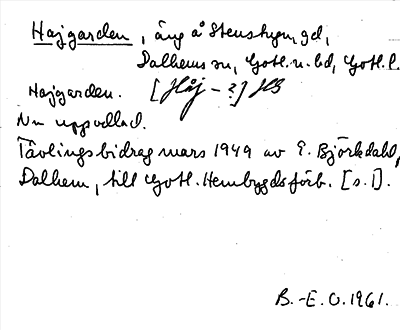 Hajgarden, äng å Stenstugu gd,
Dalhems sn, Gotl. n. hd, Gotl. l.
Hajgarden. [Håj - ?] HG
Nu uppodlad.
Tävlingsbidrag mars 1949 av E. Björkdahl,
Dalhem, till Gotl. Hembygdsförb. [s. 1].
B.-E. O. 1961.